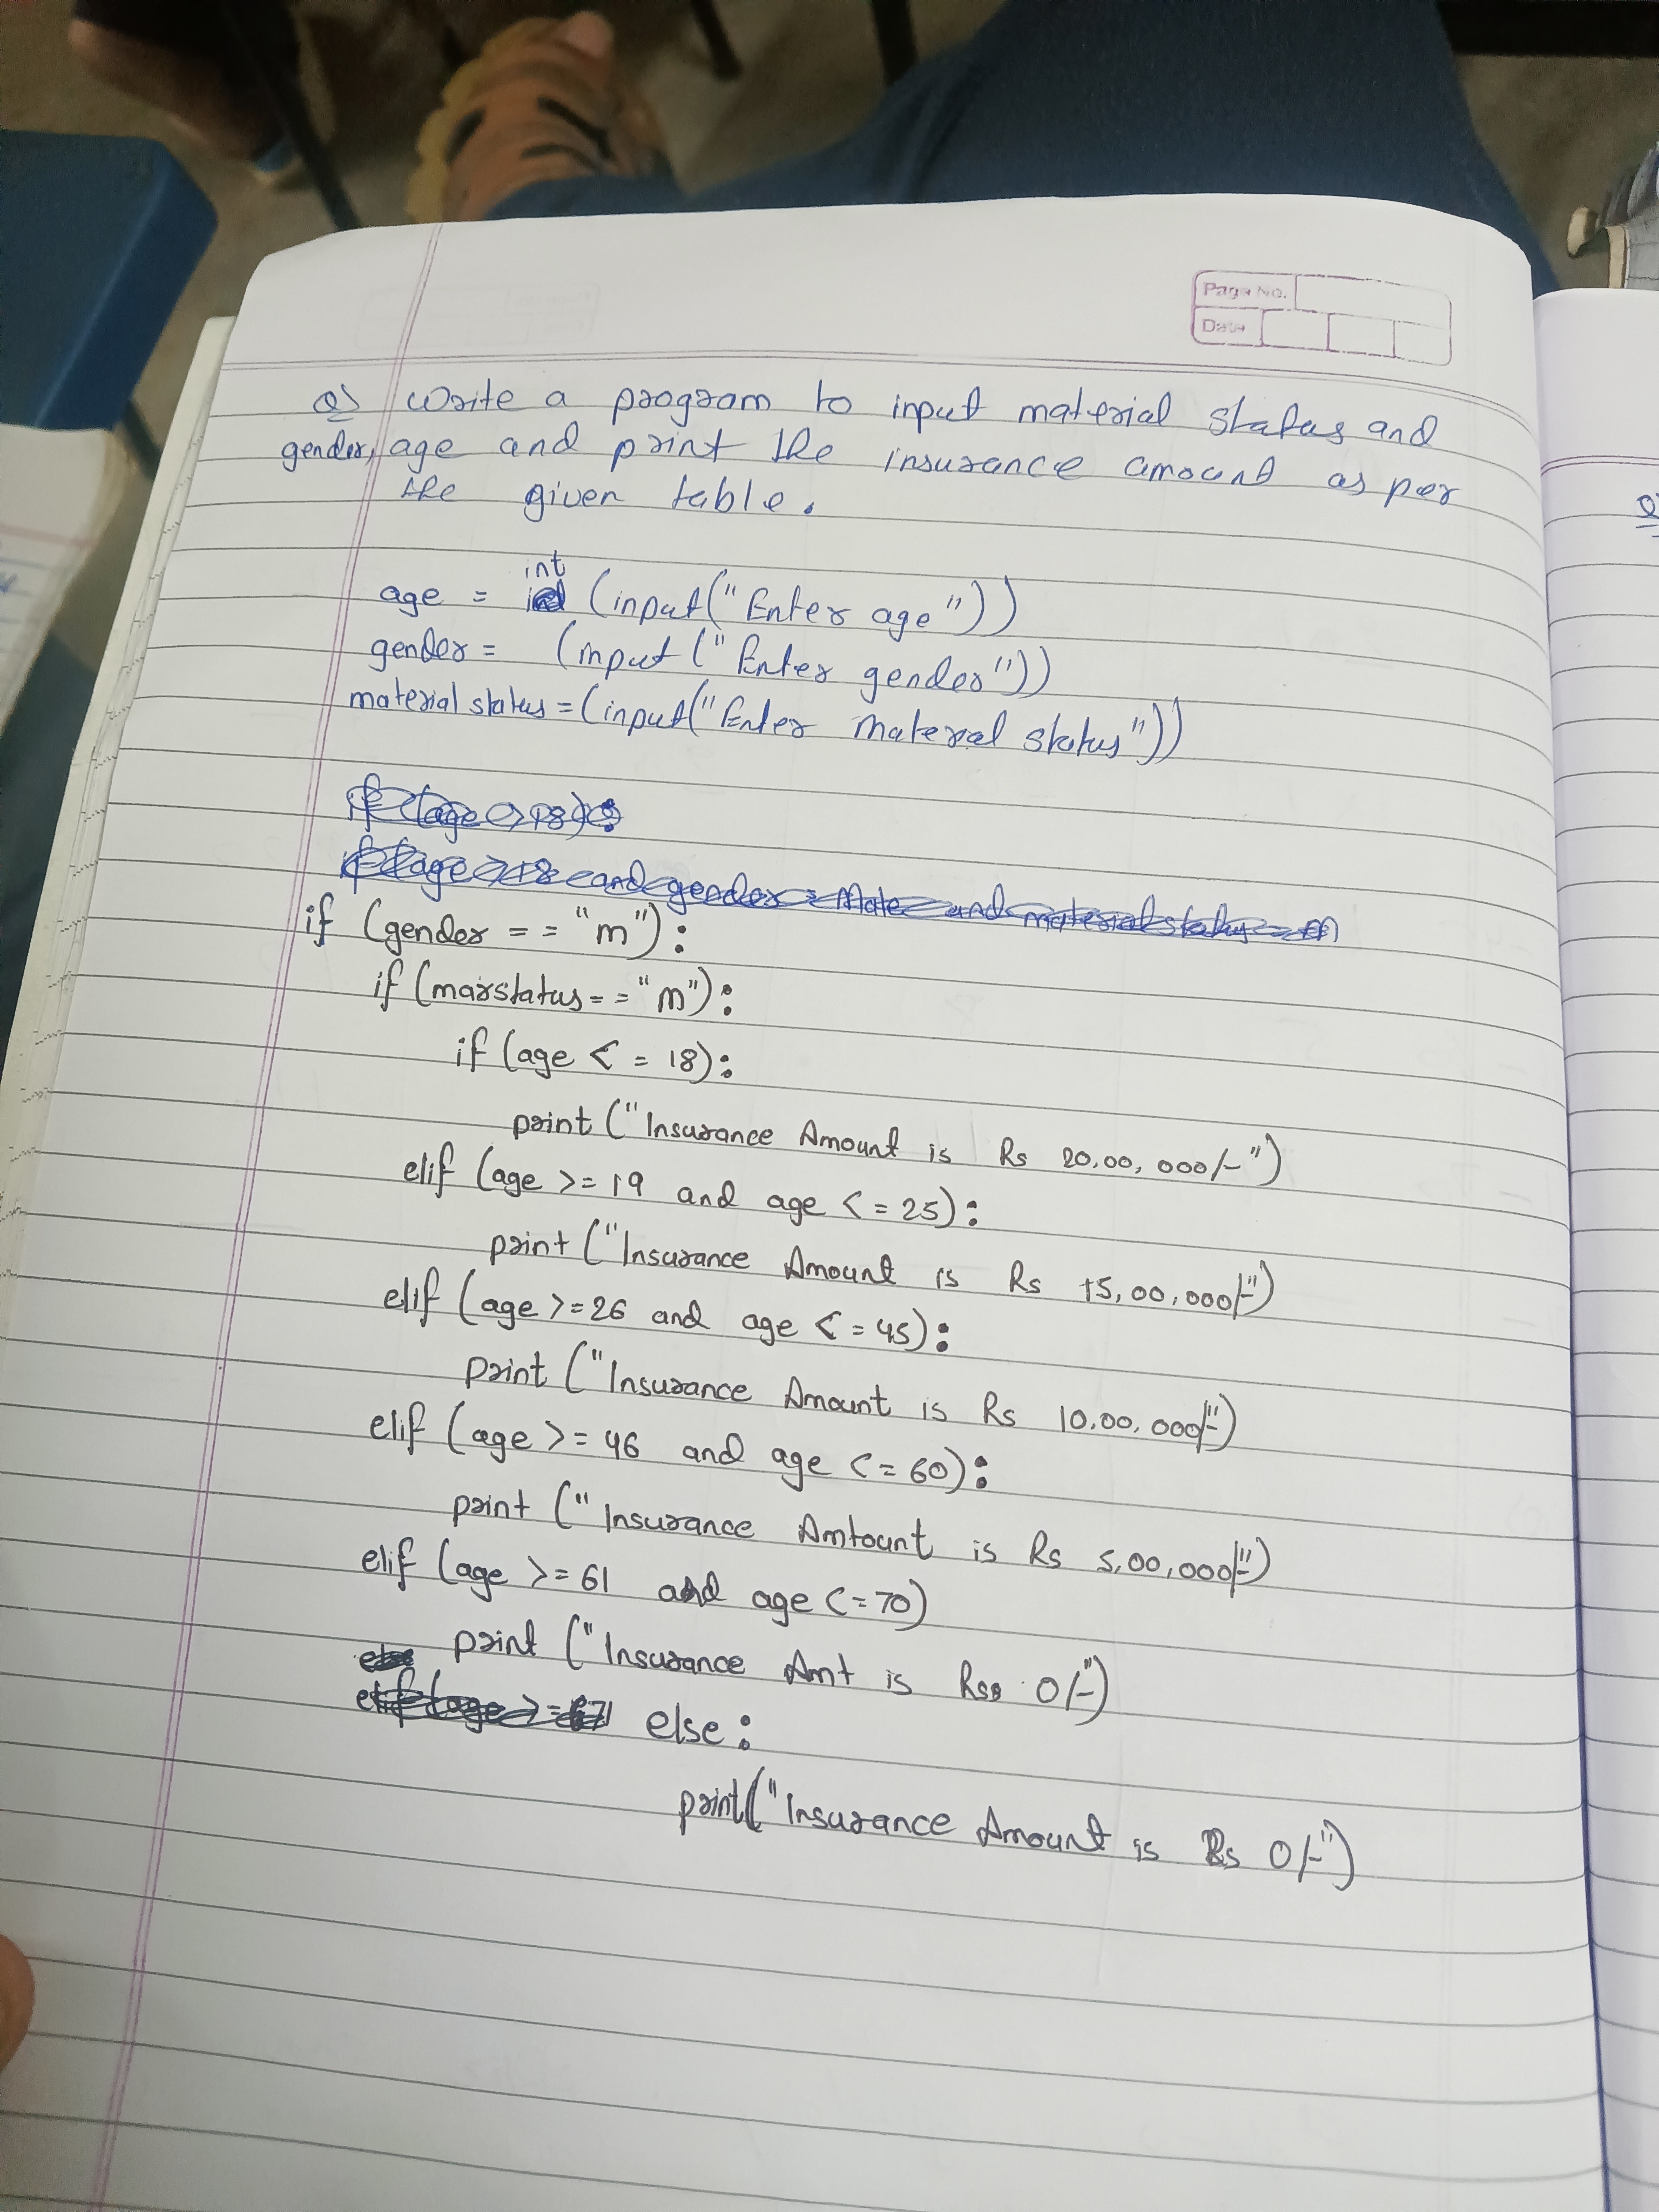 Page No.
Date
Q) Write a program to input material status and
gender, age and print the insurance amount as per
the given table.
int
age = (input("Enter age"))
gender = (input ("Enter gender"))
material status = (input("Enter material status"))
if (age > 18):
if (age > 18 and gender = Male and material status = m
if (gender == "m"):
if (marstatus == "m"):
if (age <= 18):
print ("Insurance Amount is Rs 20,00,000/-")
elif (age >= 19 and age <= 25):
print ("Insurance Amount is Rs 15,00,000/-")
elif (age >= 26 and age <= 45):
print ("Insurance Amount is Rs 10,00,000/-")
elif (age >= 46 and age <= 60):
print ("Insurance Amtount is Rs 5,00,000/-")
elif (age >= 61 and age <= 70)
print ("Insurance Amt is Rs 0/-")
else
elif (age >= 71 else:
print("Insurance Amount is Rs 0/-")
Q